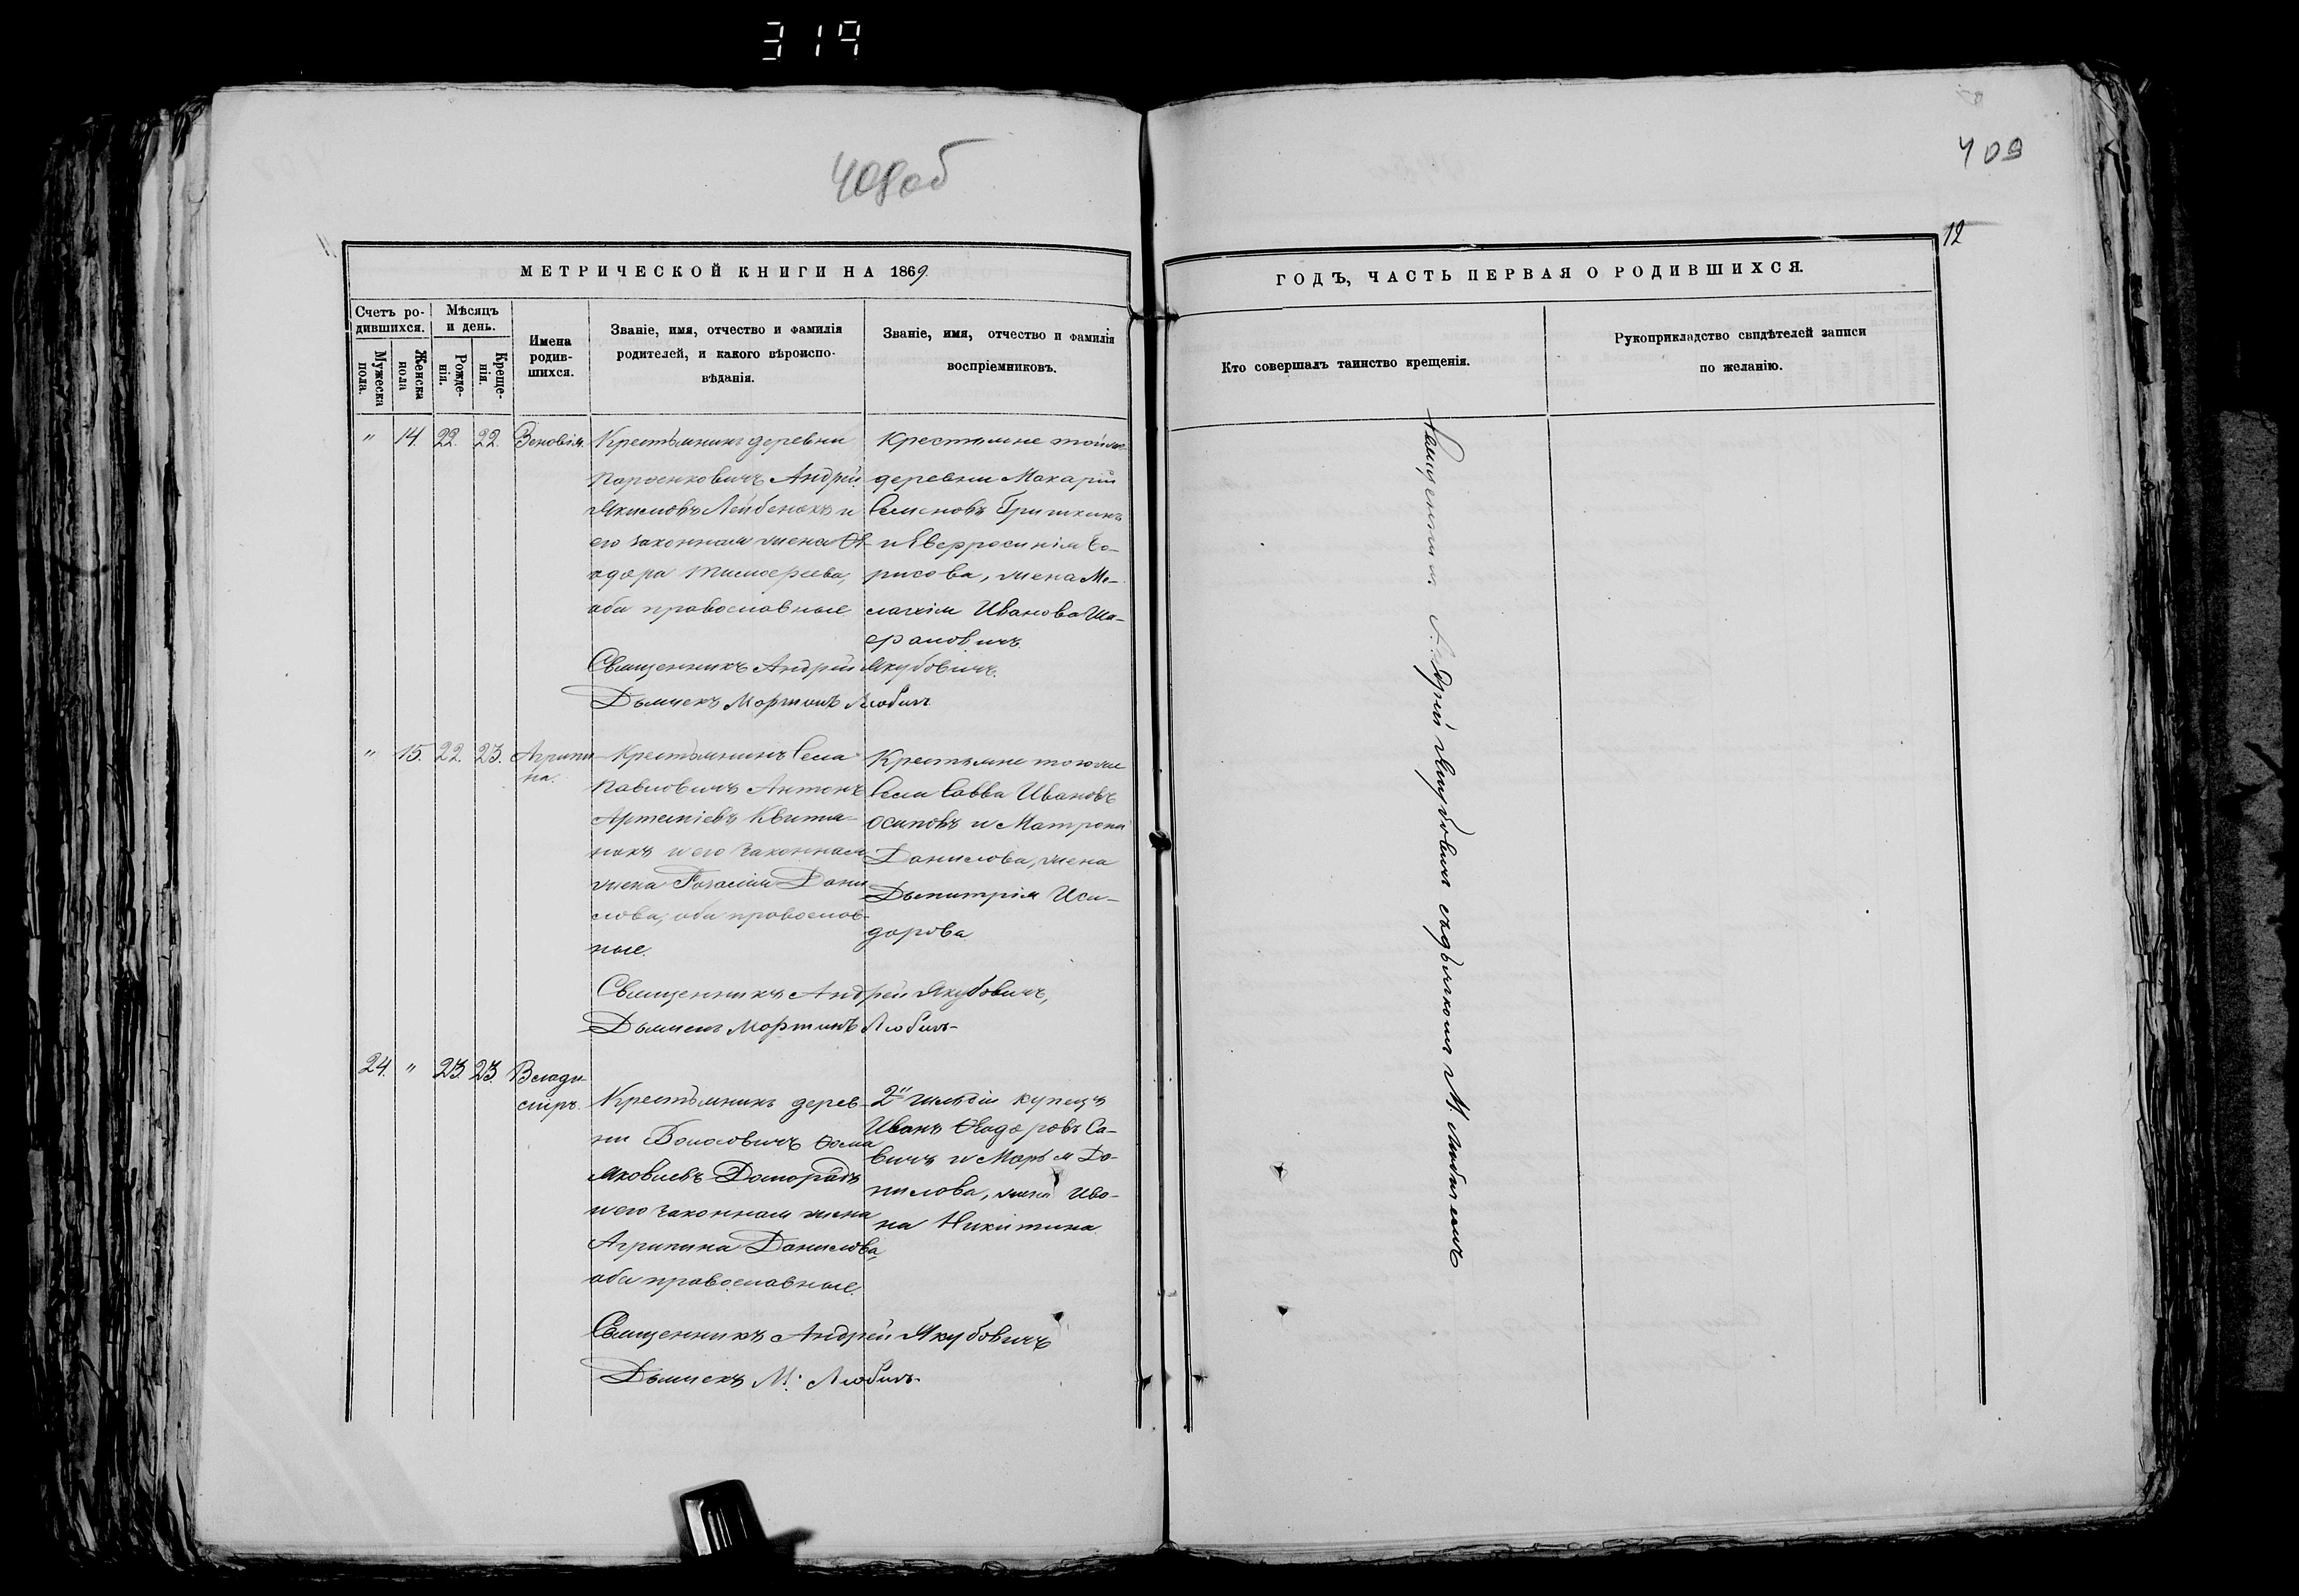 319
408об
409
12
МЕТРИЧЕСКОЙ КНИГИ НА 1869.
ГОДЪ, ЧАСТЬ ПЕРВАЯ О РОДИВШИХСЯ.
Счетъ ро-
дившихся.
Мужеска
пола.
Женска
пола
Мѣсяцъ
и день.
Рожде-
нія.
Креще-
нія.
Имена
родив-
шихся.
Званіе, имя, отчество и фамилія
родителей, и какого вѣроиспо-
вѣданія.
Званіе, имя, отчество и фамилія
воспріемниковъ.
Кто совершалъ таинство крещенія.
Рукоприкладство свидѣтелей записи
по желанію.
" 14. 22. 22. Зеновія.
Крестьянинъ деревни
Андрей
Якимовъ Лейбенокъ и
его законная жена Ѳе-
одора Тимофеева,
оба православные
Крестьяне той же
деревни Макарій
Семеновъ Гришканъ
и Евфросинія Бо-
рисова, жена Ме-
Иванова Ша-
фаловичъ
Священникъ Андрей Якубовичъ.
Дьячекъ Мартинъ Любичъ
" 15. 22. 23. Агрипи-
на.
Крестьянинъ села
Павловичъ Антонъ
Артеміевъ Квитка-
нокъ и его законная
жена Розалія Дани-
лова, оба православ-
ные.
Крестьяне того же
села Савва Ивановъ
Осиповъ и Матрона
Данилова, жена
Дьмитрія Иси-
дорова
Священникъ Андрей Якубовичъ,
Дьячекъ Мартинъ Любичъ
24. " 23. 23. Влади-
міръ.
Крестьянинъ дерев-
ни Ѳома
Яковлевъ Доморадъ
и его законная жена
Агрипина Данилова,
оба православные.
2й гильдіи купецъ
Иванъ Ѳеодоровъ Са-
вичъ и Марья Да-
нилова, жена Ива-
на Никитина
Священникъ Андрей Якубовичъ
Дьячекъ М. Любичъ
Священникъ Андрей Якубовичъ съ дьячкомъ М. Любичемъ